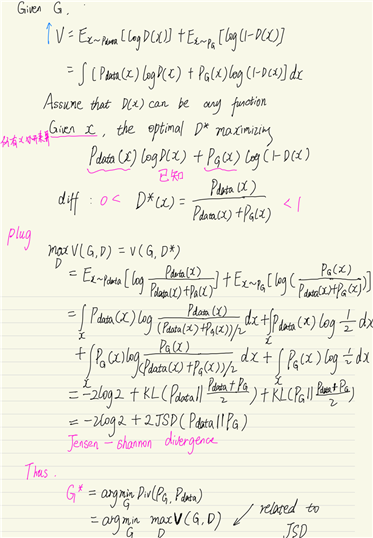 Given G.
↑ V = E_{x~Pdata}[log D(x)] + E_{x~P_G}[log(1-D(x)]
= ∫ (Pdata(x) log D(x) + P_G(x) log(1-D(x)] dx
Assume that D(x) can be any function
Given x, the optimal D* maximizing
Pdata(x) log D(x) + P_G(x) log(1-D(x)
已知
diff : 0 < D*(x) = Pdata(x) / Pdata(x)+P_G(x) < 1
plug
max_D V(G,D) = V(G,D*)
= E_{x~Pdata}[log Pdata(x) / Pdata(x)+P_G(x)] + E_{x~P_G}[log( P_G(x) / Pdata(x)+P_G(x))]
= ∫_x Pdata(x) log Pdata(x) / (Pdata(x)+P_G(x))/2 dx + ∫_x Pdata(x) log 1/2 dx
+ ∫_x P_G(x) log P_G(x) / (Pdata(x)+P_G(x))/2 dx + ∫_x P_G(x) log 1/2 dx
= -2log2 + KL(Pdata || Pdata+P_G / 2) + KL(P_G || Pdata+P_G / 2)
= -2log2 + 2JSD(Pdata || P_G)
Jensen-shannon divergence
Thus.
G* = argmin_G Div(P_G, Pdata)
= argmin_G max_D V(G,D) ↙ related to
JSD